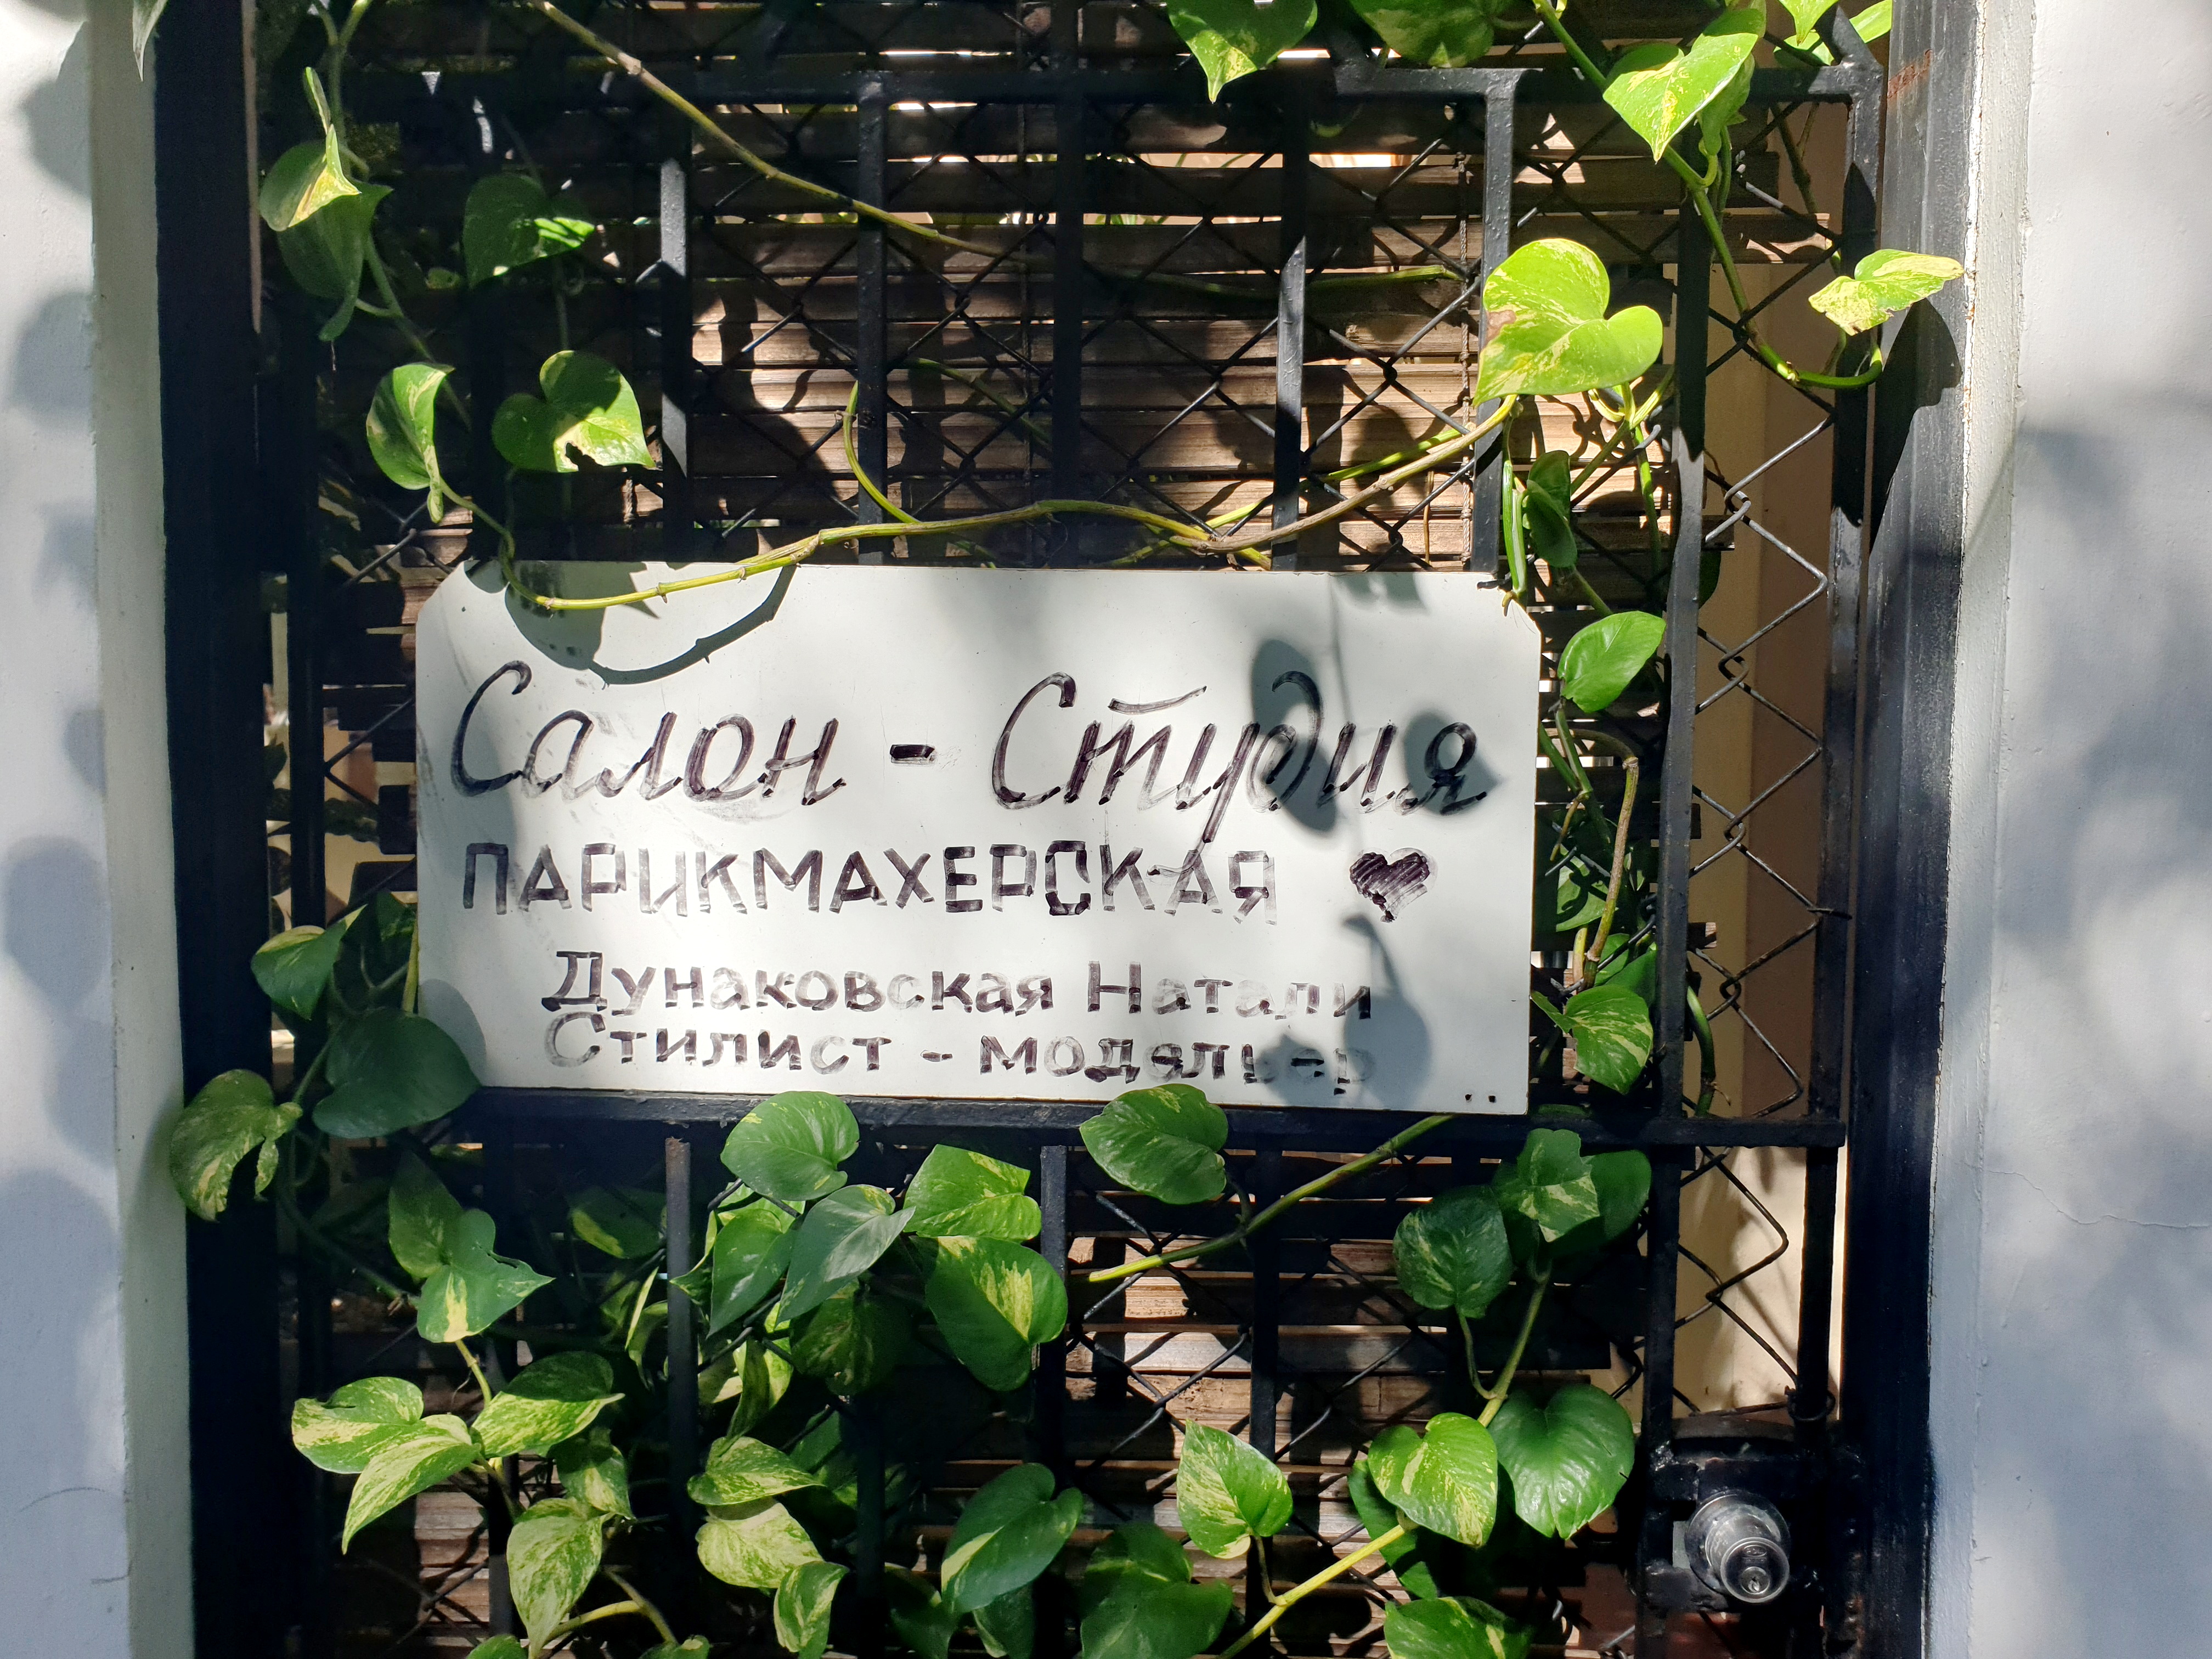 Салон - Студия
ПАРИКМАХЕРСКАЯ ♥
Дунаковская Натали
Стилист - модельер